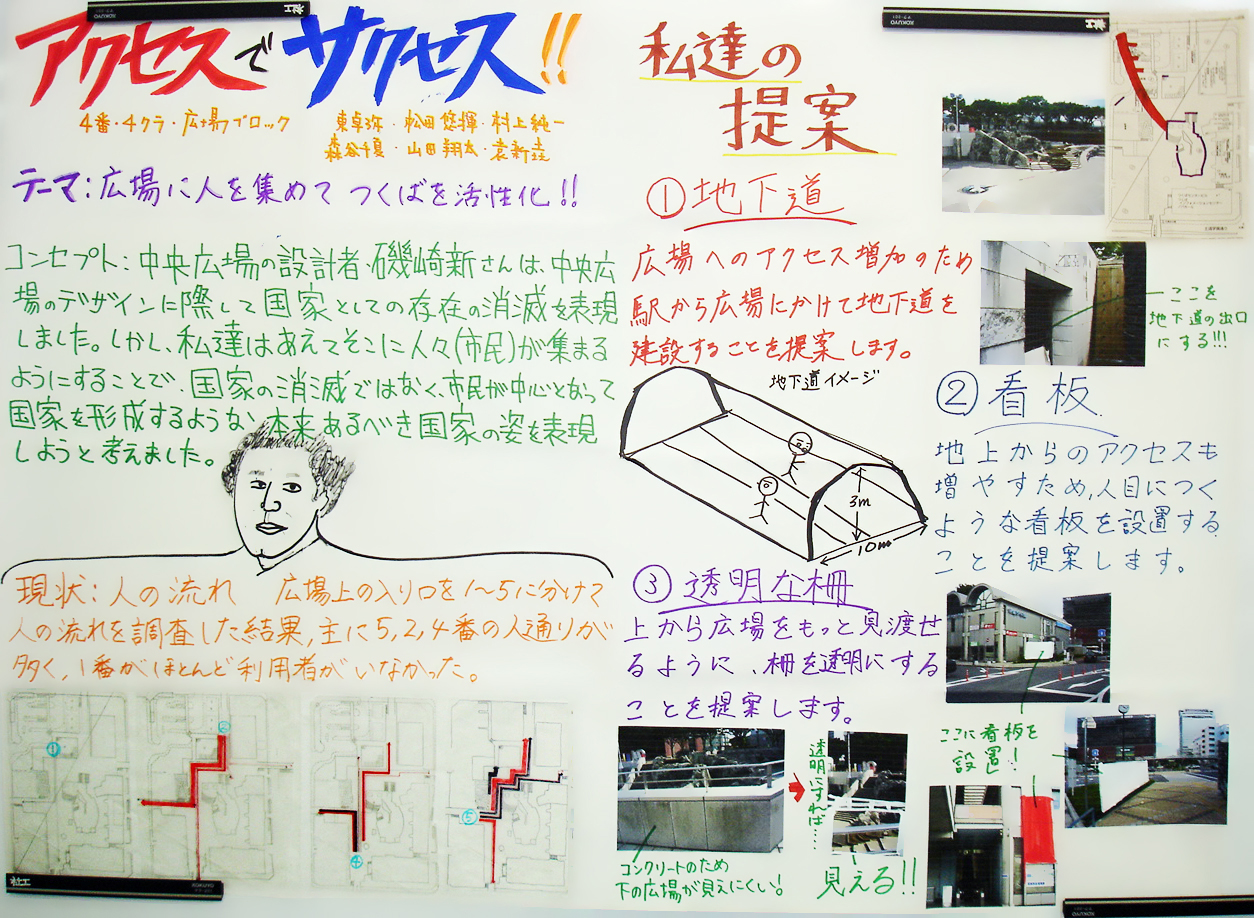 アクセスでサクセス!!
4番・4クラ・広場ブロック
東卓弥・松田悠揮・村上純一
森谷千夏・山田翔太・袁新
テーマ:広場に人を集めて つくばを活性化!!
コンセプト:中央広場の設計者・磯崎新さんは、中央広
場のデザインに際して国家としての存在の消滅を表現
しました。しかし、私達はあえてそこに人々(市民)が集まる
ようにすることで、国家の消滅ではなく、市民が中心となって
国家を形成するような、本来あるべき国家の姿を表現
しようと考えました。
現状:人の流れ 広場上の入り口を1〜5に分けて
人の流れを調査した結果,主に5,2,4番の人通りが
多く,1番がほとんど利用者がいなかった。
①
②
④
⑤
私達の
提案
①地下道
広場へのアクセス増加のため
駅から広場にかけて地下道を
建設することを提案します。
地下道イメージ
3m
10m
ここを
地下道の出口
にする!!!
②看板
地上からのアクセスも
増やすため,人目につく
ような看板を設置する
ことを提案します。
ここに看板を
設置!
③透明な柵
上から広場をもっと見渡せ
るように、柵を透明にする
ことを提案します。
コンクリートのため
下の広場が見えにくい!
透明にすれば…
見える!!
KOKUYO
社工
KOKUYO
社工
社工
KOKUYO